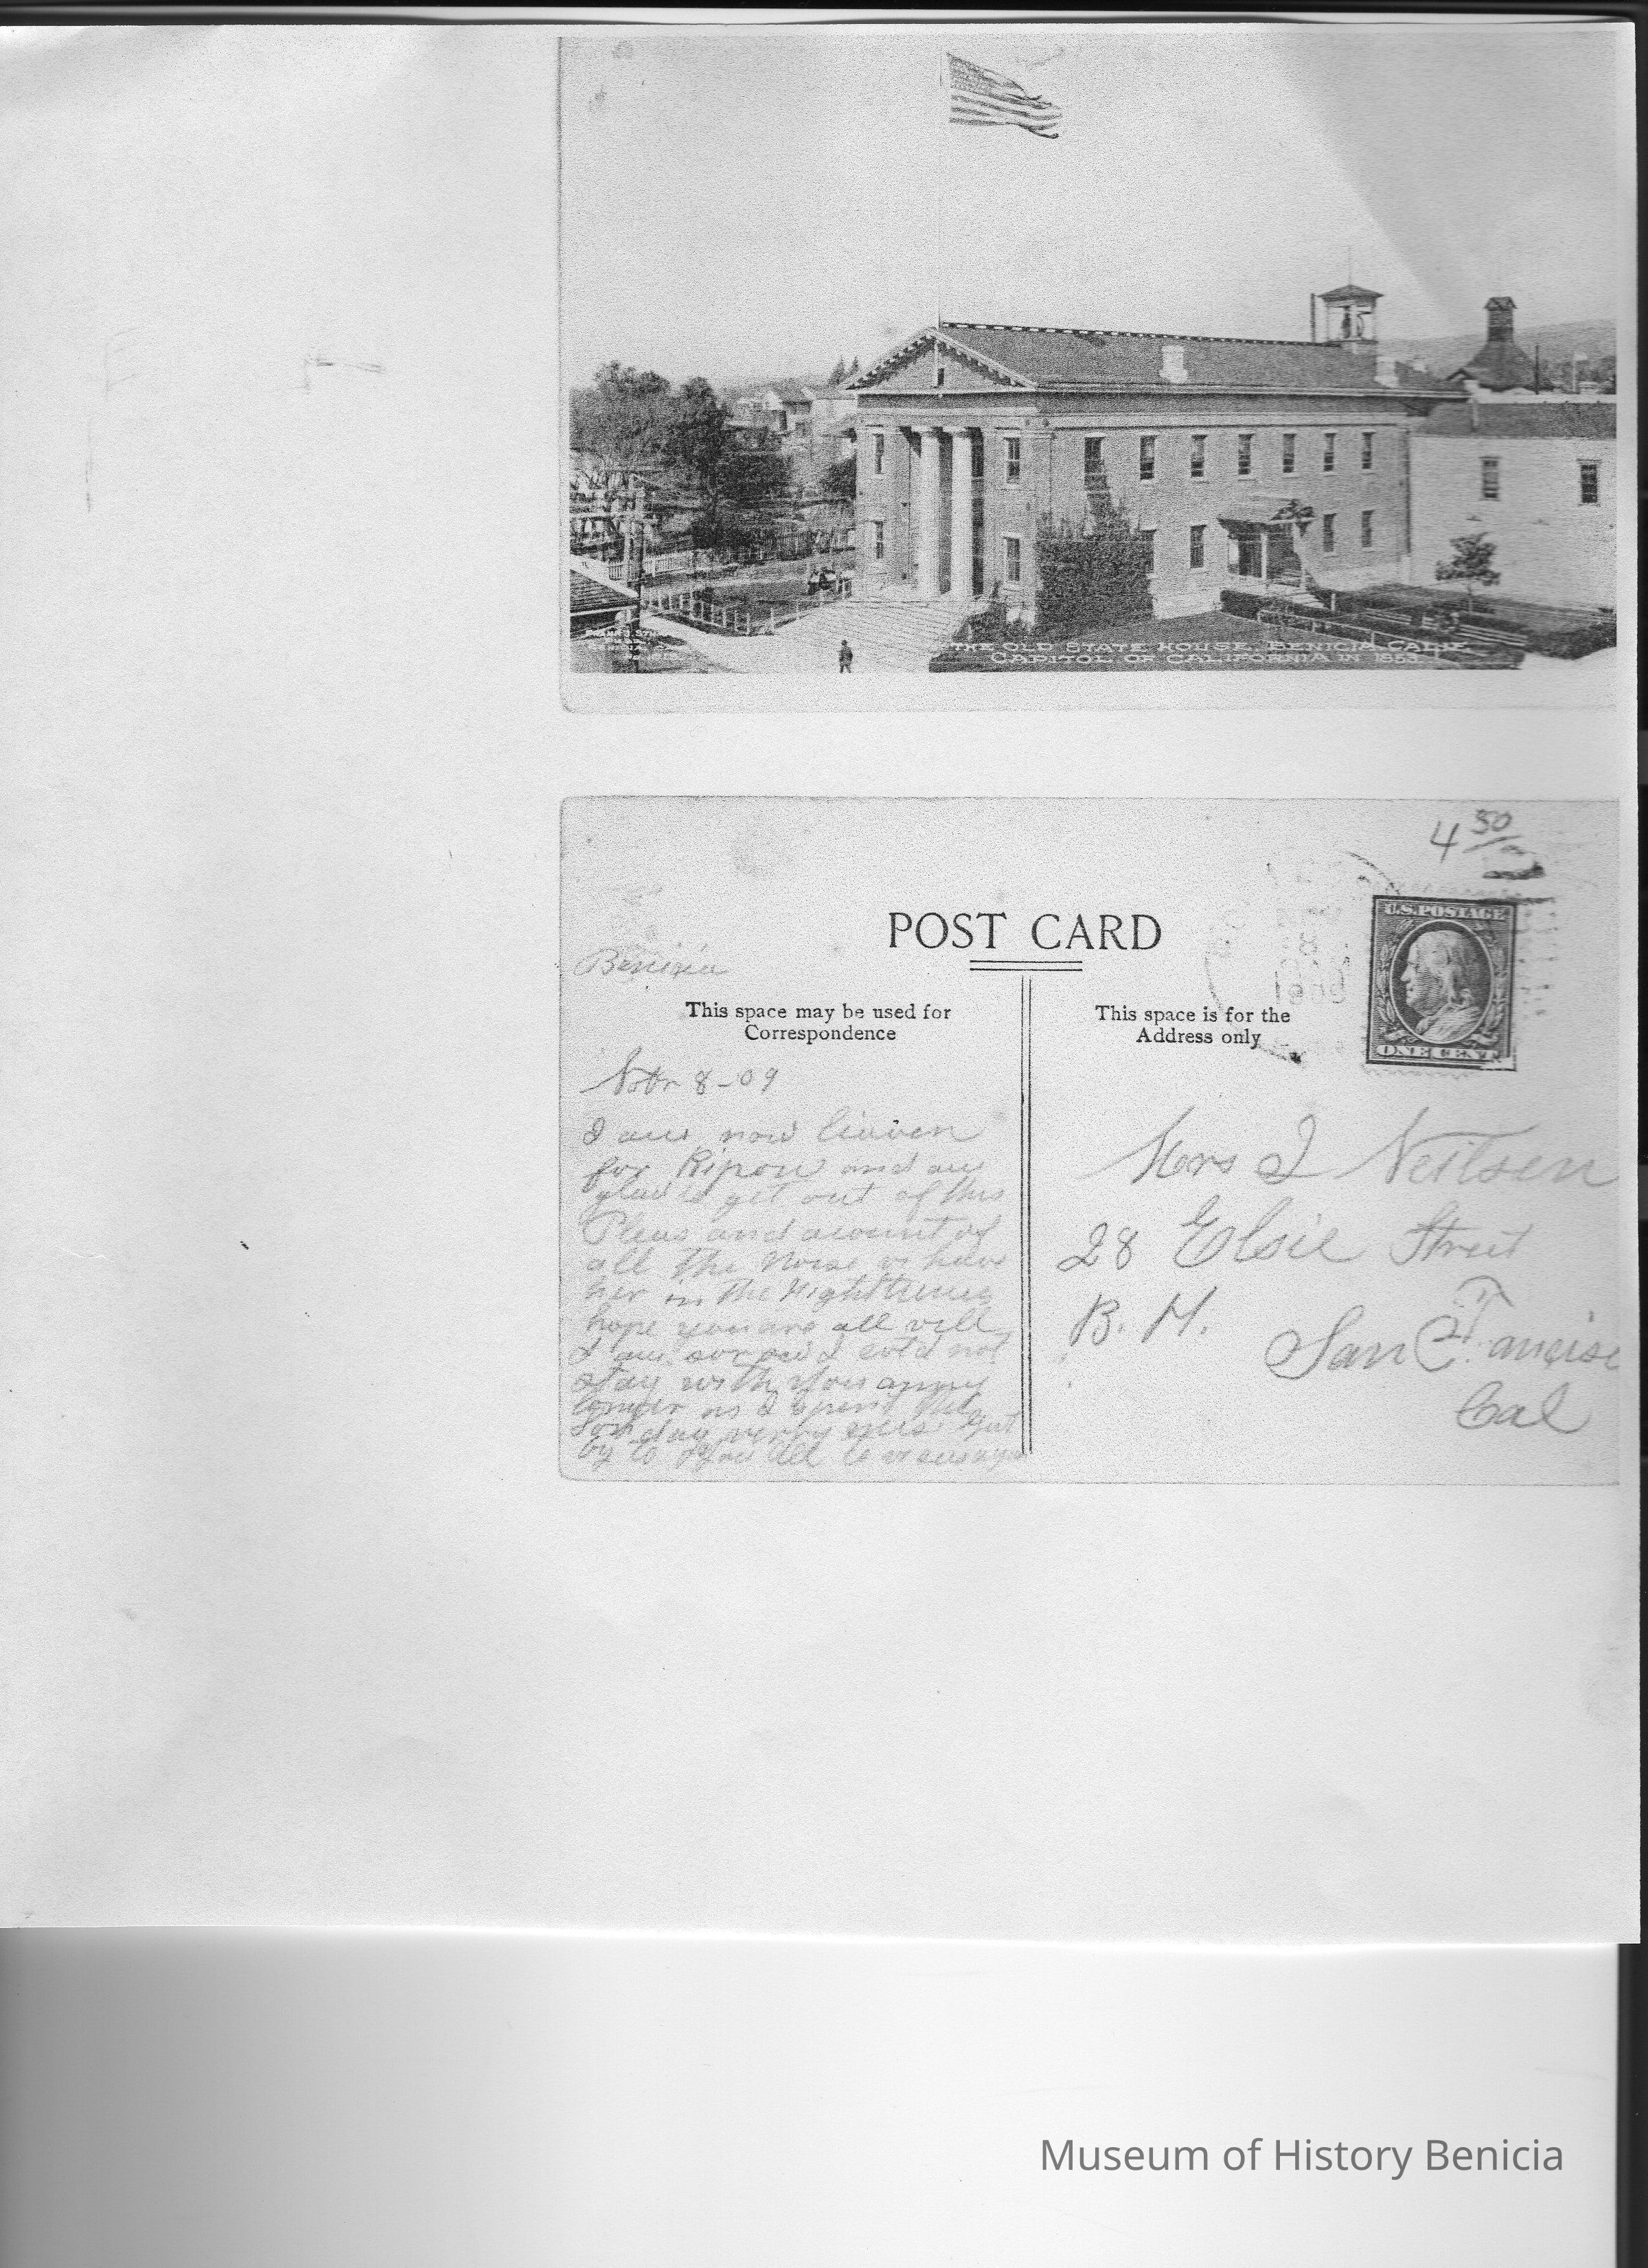 THE OLD STATE HOUSE, BENICIA, CALIF.
CAPITOL OF CALIFORNIA IN 1853
4 50
POST CARD
U.S. POSTAGE
ONE CENT
8
1909
Benicia
This space may be used for
Correspondence
This space is for the
Address only
Nov 8-09
I am now
for Ripon and am
glad to get out of this
Pleas and acount of
all the Noise
her in the Night
hope you are all vell
I am I not
stay with you
longer as I
Son day verry
by to You all
Mrs J Neilsen
28 Elsie Street
B. H.
San Francisc
Cal
Museum of History Benicia